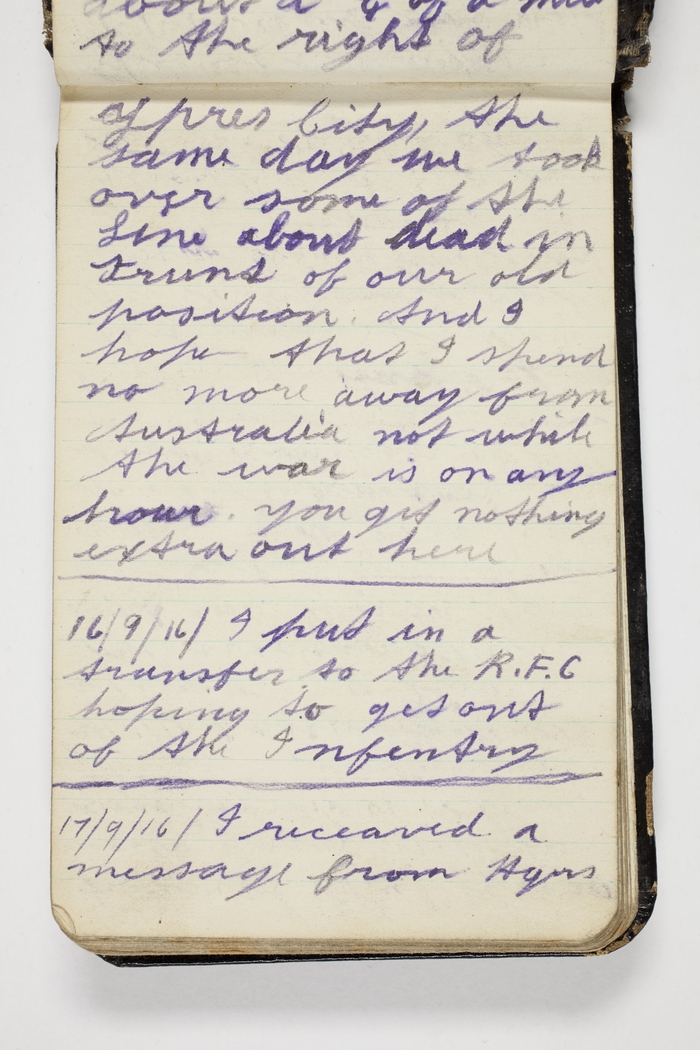 about a ¼ of a mile
to the right of
ypres City, the
same day we took
over some of the
Line about dead in
frunt of our old
position. And I
hope that I spend
no more away from
Australia not while
the war is on any
hour. You get nothing
extra out here
16/9/16/ I put in a
transfer to the R.F.C
hoping to get out
of the Infentry
17/9/16/ I receaved a
message from Hqrs